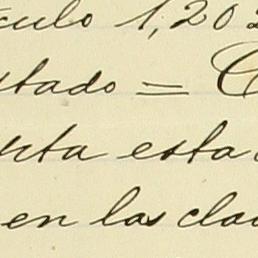 culo 1,202
tado = C
uta esta
en las cla